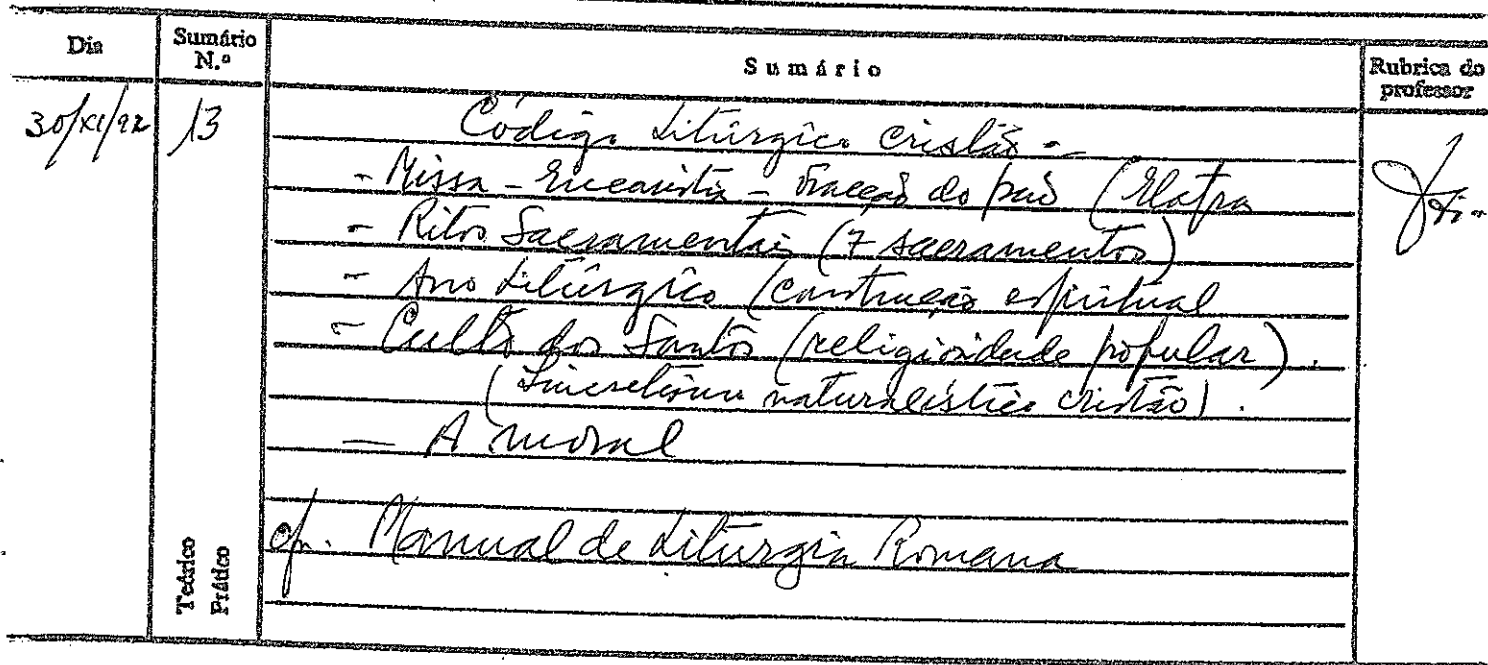 Dia
Sumário
N.º
Sumário
Rubrica do
professor
30/XI/92
13
Código Litúrgico cristão -
- Missa - Eucaristia - Fracção do pão (
- Ritos Sacramentais (7 sacramentos)
- Ano Litúrgico (construção espiritual
- Culto dos Santos (religiosidade popular).
(Sincretismo naturalístico cristão).
- A moral
cf. Manual de Liturgia Romana
Teórico
Prático